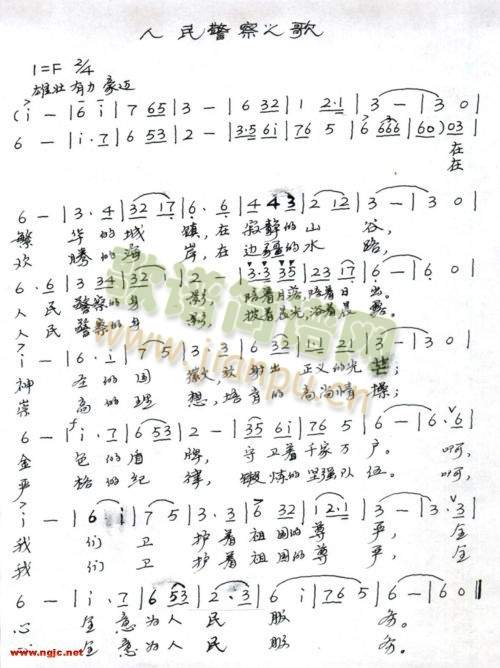 人民警察之歌
1=F 2/4
雄壮有力 豪迈
(i - | 6 i | 7 65 | 3 - | 6 32 | 1 2·1 | 3 - | 3 0 |
6 - | i·7 | 6 53 | 2 - | 3·5 6i | 76 5 | 6 666 | 60) 03 |
在
在
6 - | 3·4 | 32 17 | 6·6 | 4 43 | 2 12 | 3 - | 3 0 |
繁 华的城 镇,在寂静的山 谷,
欢 腾的海 岸,在边疆的水 路,
6·6 | 3 34 | 32 | 2 - | 3·3 35 | 23 17 | 6 - | 6 0 |
人民警察的身 影, 陪着月落,陪着日 出。
人民警察的身 影, 披着星光,浴着晨 露。
i - | 6·i | 7 5 | 3·3 | 6 32 | 1·1 21 | 3 - | 3 0 |
神 圣的国 徽,放射出 正义的光 芒;
崇 高的理 想,培育的高尚情 操;
6 - | i·7 | 6 53 | 2 - | 35 6i | 76 5 | 6 - | 6·6 |
金 色的盾 牌, 守卫着千家万 户。 啊,
严 格的纪 律, 锻炼的坚强队 伍。 啊,
i - | 6 i | 7 5 | 3·3 | 6 32 | 1 2·1 | 3 - | 3·3 |
我 们卫 护着祖国的尊 严, 全
我 们卫 护着祖国的尊 严, 全
6 - | i·7 | 6 53 | 2·3 | 6 i | 76 5 | 6 - | 6 0 ‖
心 全意为人民 服 务。
心 全意为人民 服 务。
歌谱简谱网
www.jianpu.cn
www.ngjc.net